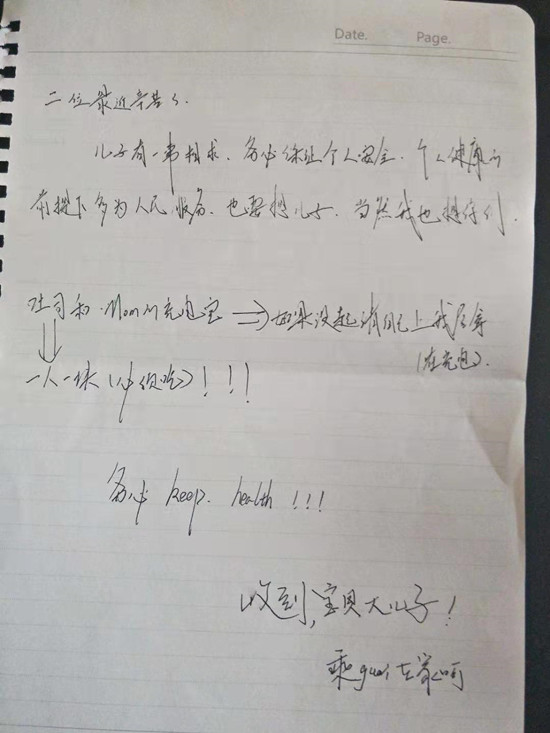 Date. Page.
二位最近辛苦了.
儿子有一事相求. 务必保证个人安全. 个人健康的
前提下多为人民服务. 也要想儿子. 当然我也想你们.
吐司和 Mom的充电宝 ⇒ 如果没起请自己上我屋拿
(在充电).
⇓
一人一块 (必须吃)!!!
务必 keep. health!!!
收到,宝贝大儿子!
乖guai在家呵